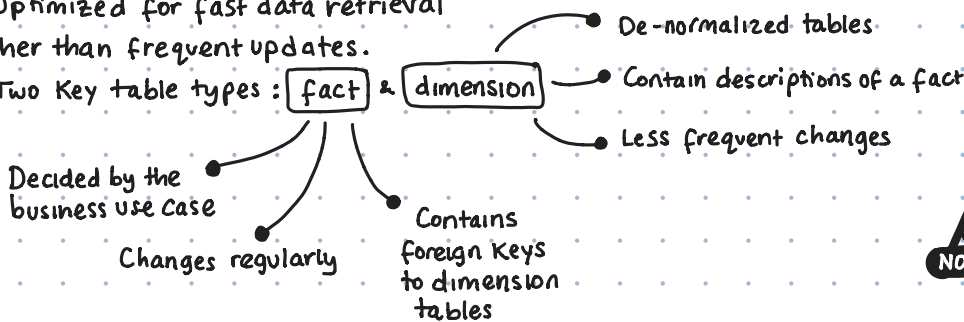 optimized for fast data retrieval
her than frequent updates.
Two Key table types : fact & dimension
De-normalized tables
Contain descriptions of a fact
Less frequent changes
Decided by the
business use case
Changes regularly
Contains
foreign Keys
to dimension
tables
NO